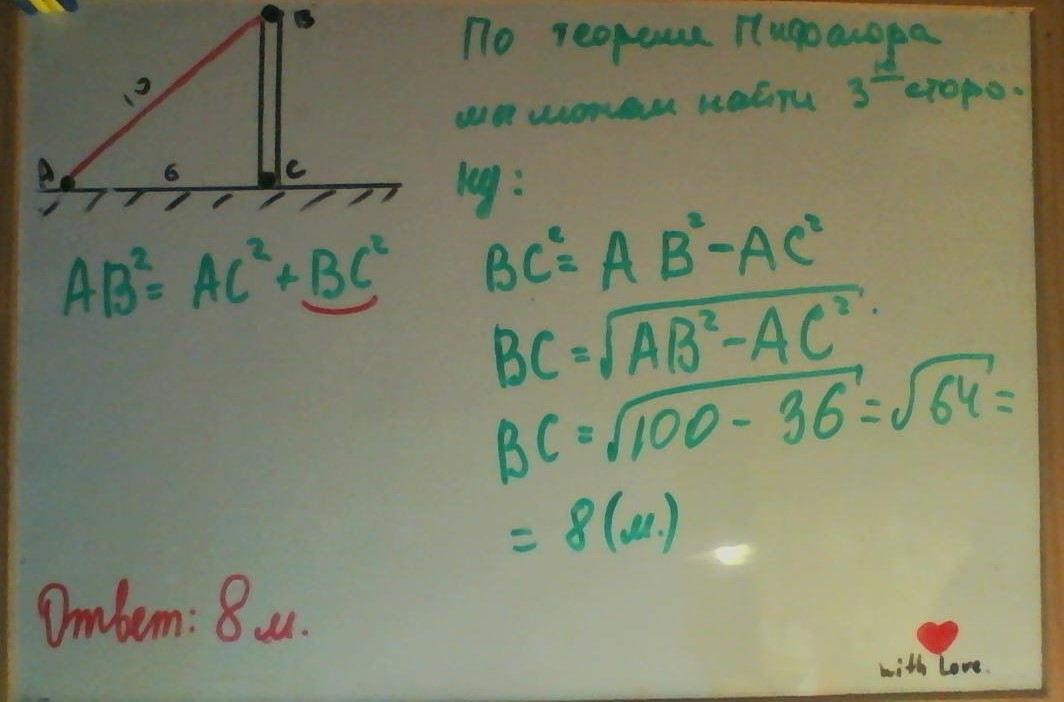 B
10
A
6
C
AB² = AC² + BC²
По теореме Пифагора
мы можем найти 3ю сторо-
ну:
BC² = AB² - AC²
BC = √AB² - AC².
BC = √100 - 36 = √64 =
= 8 (м.)
Ответ: 8 м.
with Love.